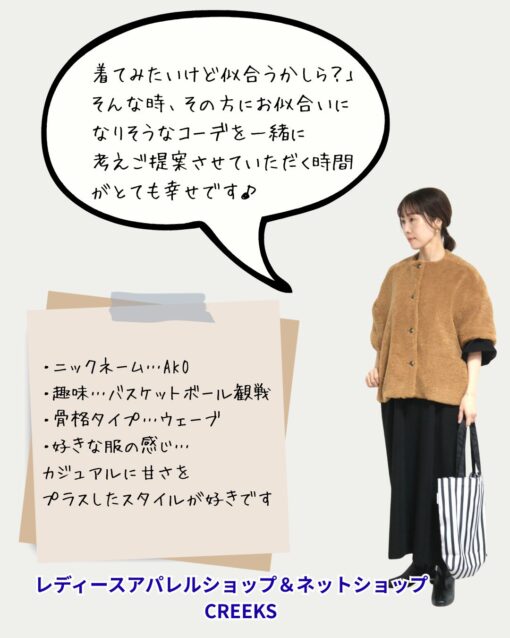 着てみたいけど似合うかしら？」
そんな時、その方にお似合いに
なりそうなコーデを一緒に
考えご提案させていただく時間
がとても幸せです♪
・ニックネーム…AKO
・趣味…バスケットボール観戦
・骨格タイプ…ウェーブ
・好きな服の感じ…
カジュアルに甘さを
プラスしたスタイルが好きです
レディースアパレルショップ＆ネットショップ
CREEKS